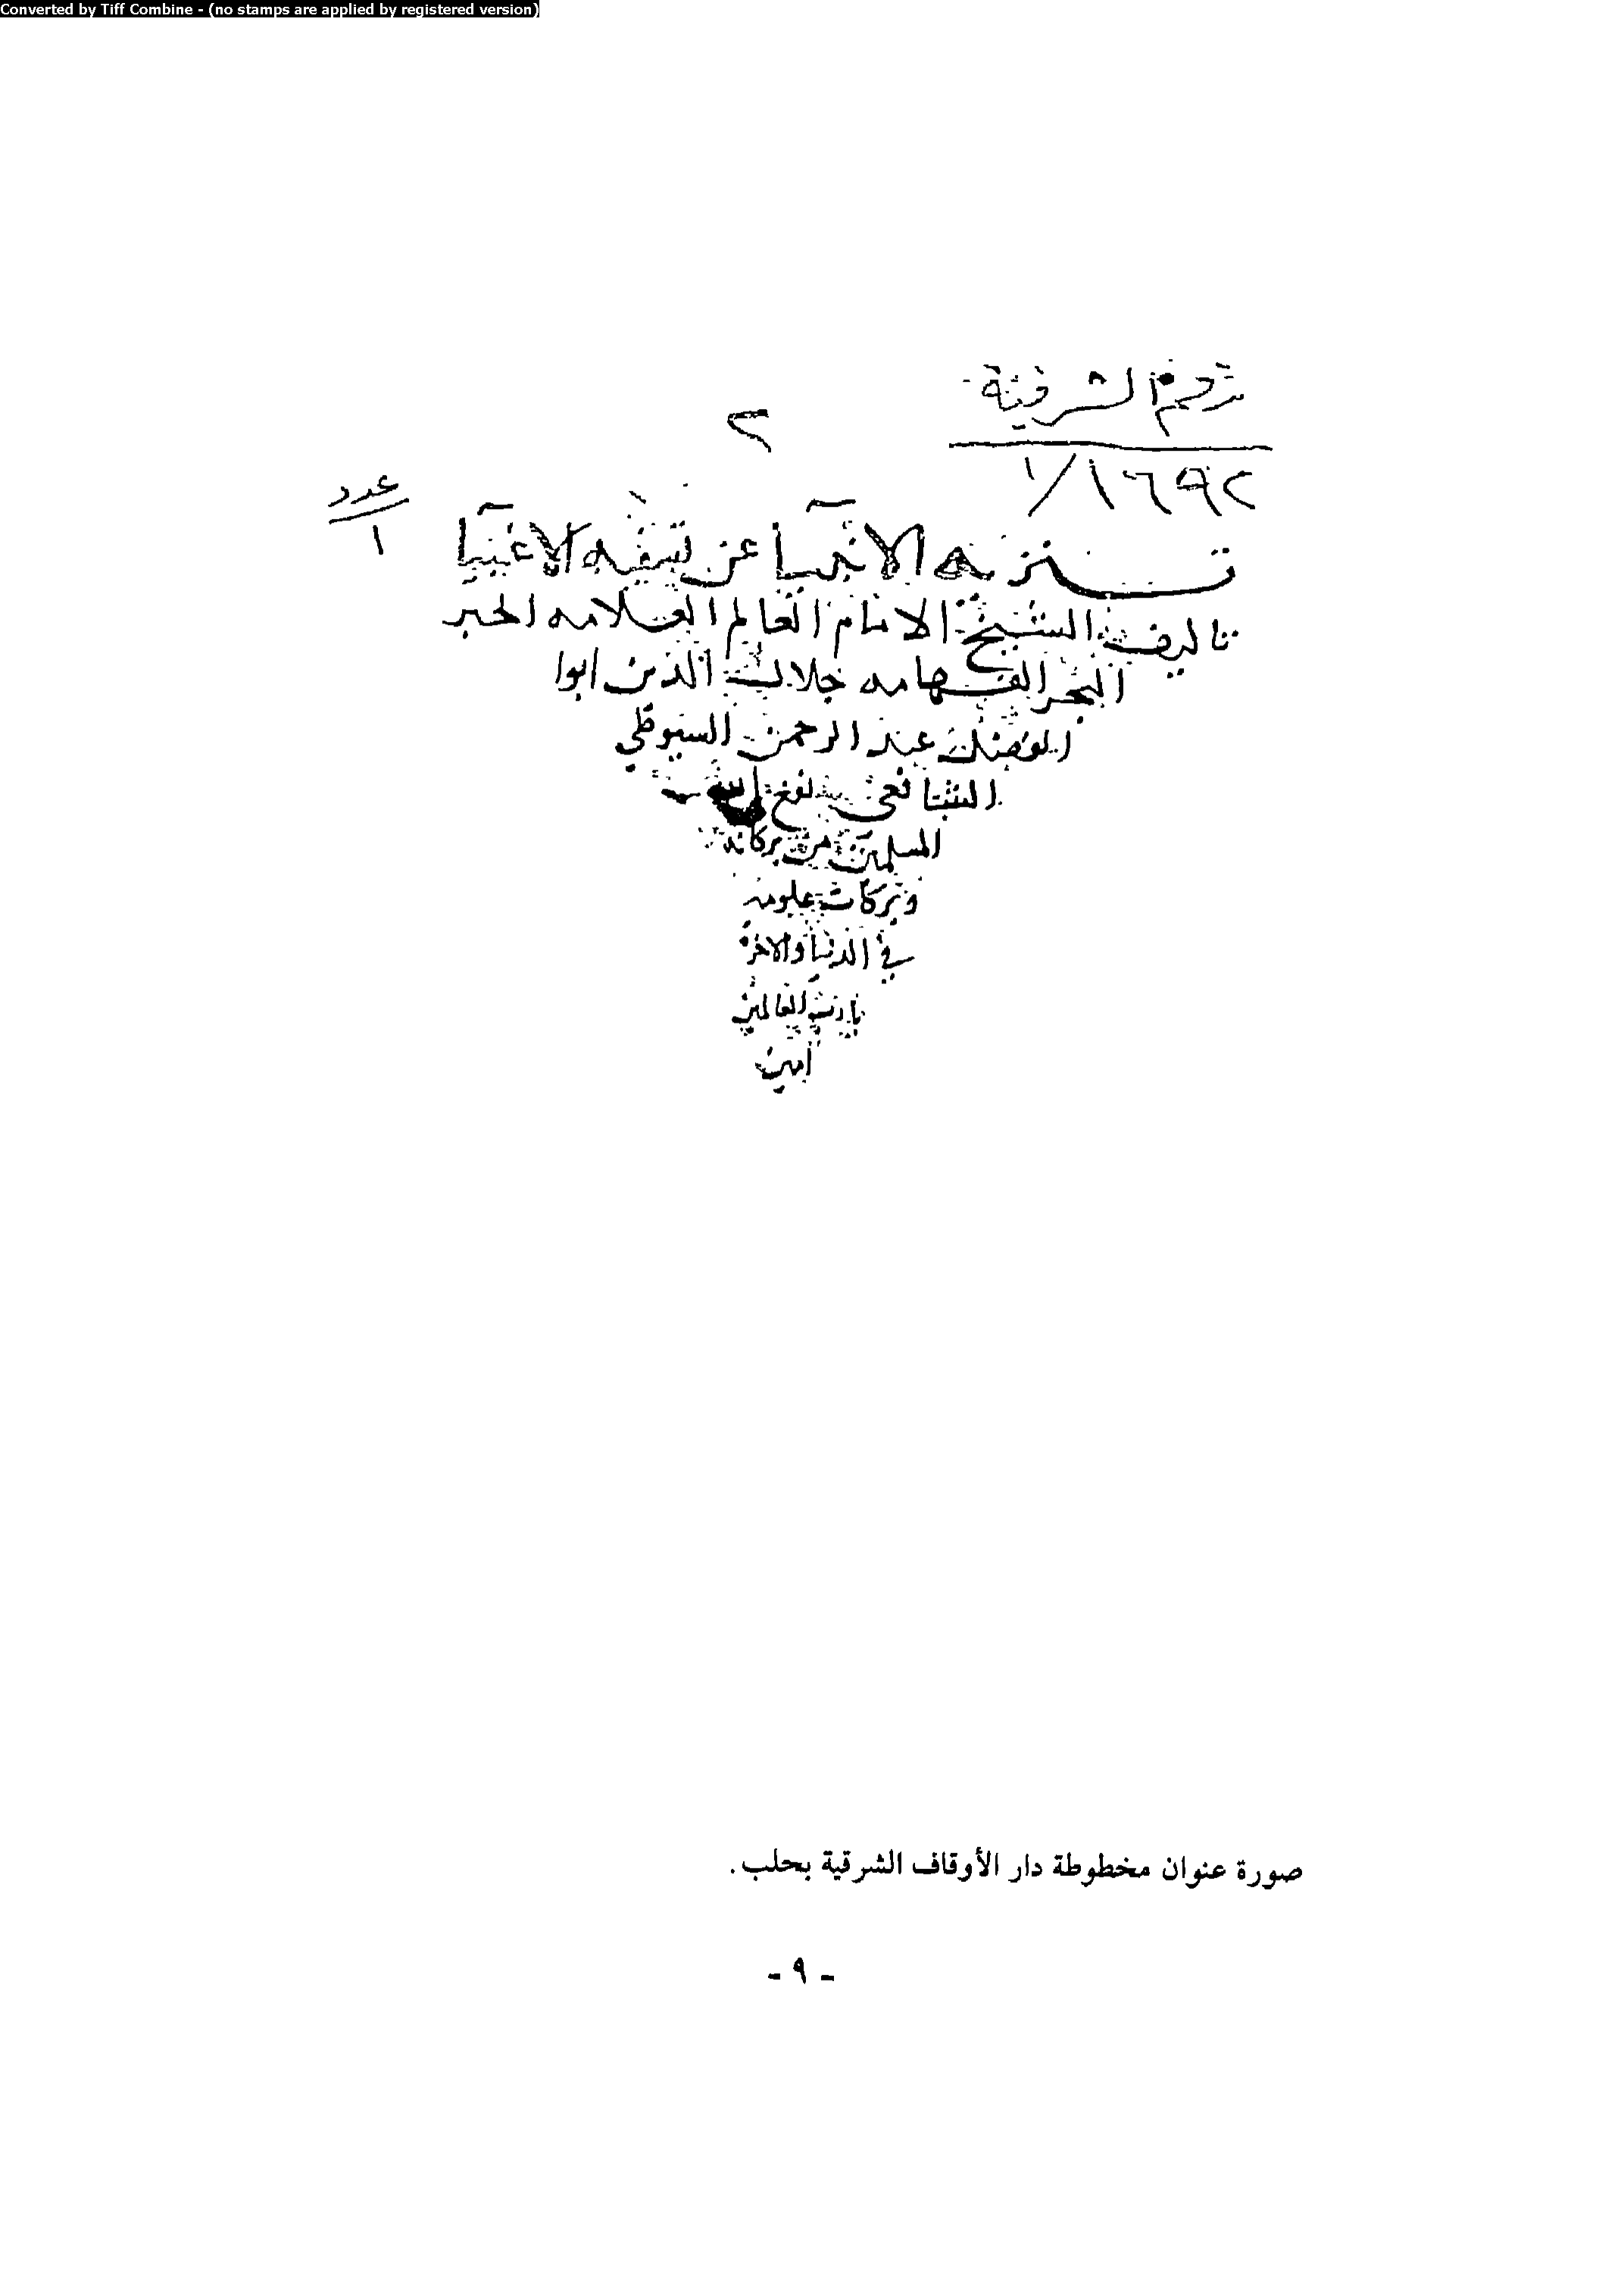 Converted by Tiff Combine - (no stamps are applied by registered version)
رقم الشرقية
٢
١٦٩٢/١
عدد
١
تنزيه الانبيآ عن تسفيه الاغبيآ
تاليف الشيخ الامام العالم العلامه الحبر
البحر الفهامه جلال الدين ابوا
الفضل عبد الرحمن السيوطي
الشافعي نفع الله
المسلمين من بركاته
وبركات علومه
في الدنيا والاخرة
يا رب العالمين
امين
صورة عنوان مخطوطة دار الأوقاف الشرقية بحلب.
- ٩ -